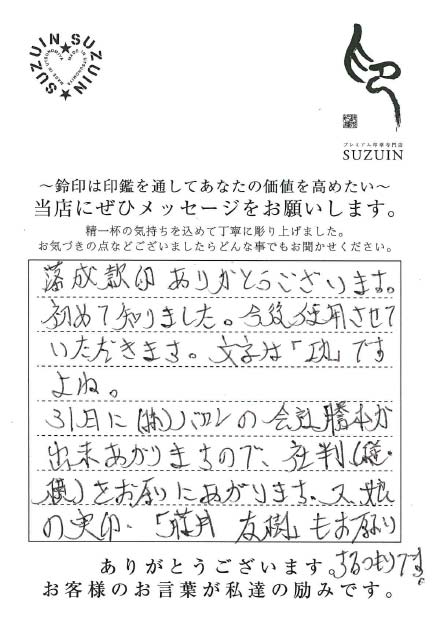 SUZUIN SUZUIN
プレミアム印章専門店
SUZUIN
～鈴印は印鑑を通してあなたの価値を高めたい～
当店にぜひメッセージをお願いします。
精一杯の気持ちを込めて丁寧に彫り上げました。
お気づきの点などございましたらどんな事でもお聞かせください。
落成款印 ありがとうございます。
初めて知りました。今後使用させて
いただきます。文字は「」です
よね。
31日に(株)の会社謄本が
出来あがりますので、社判(縦・
横)をお願いにあがります。又、娘
の実印・「 友樹」もお願い
するつもりです。
ありがとうございます。
お客様のお言葉が私達の励みです。